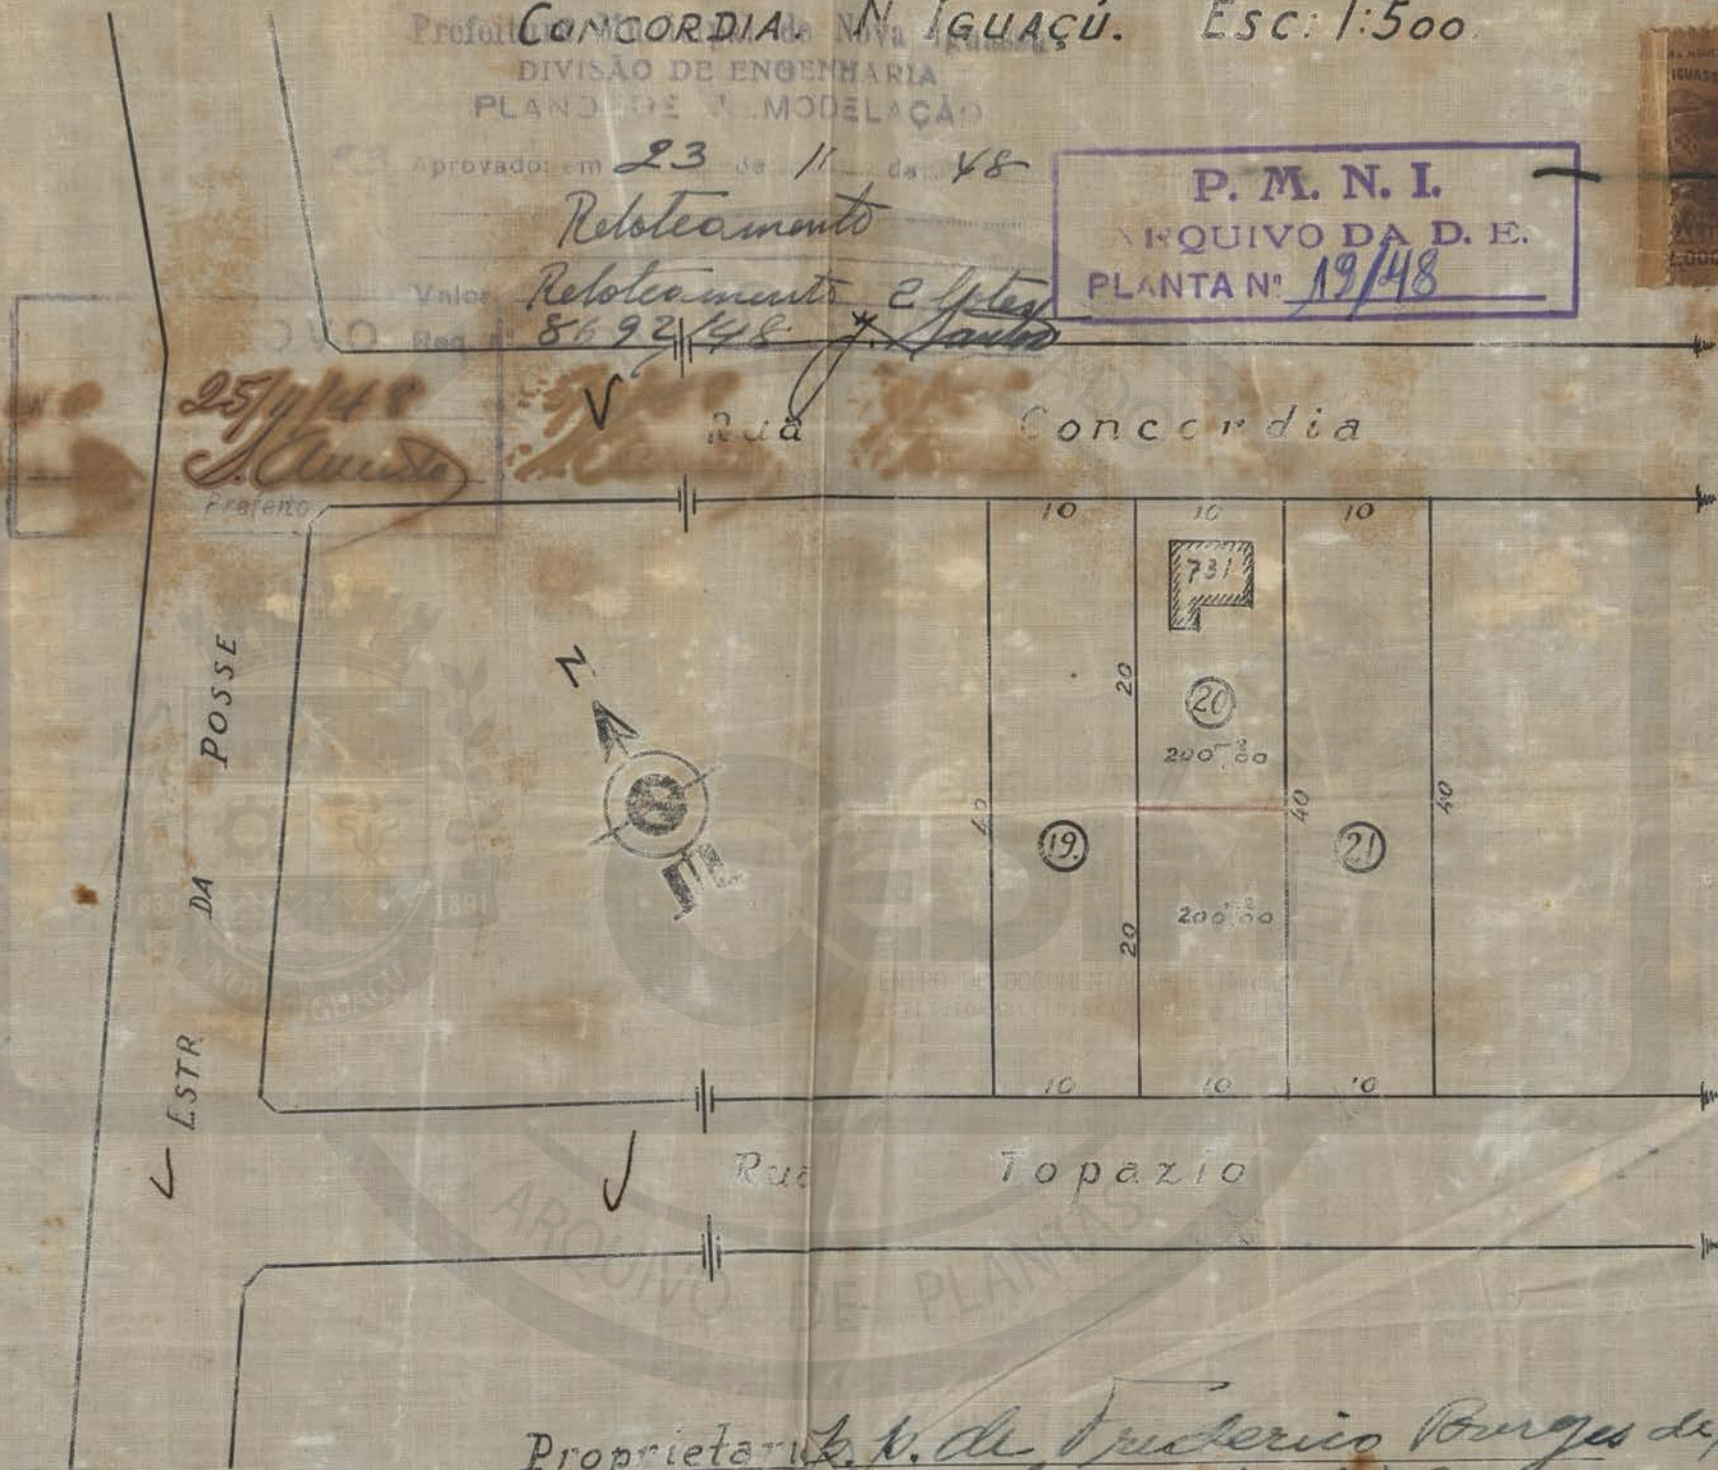 CONCORDIA. N. IGUAÇÚ. Esc: 1:500
Prefeitura Municipal de Nova Iguassú
DIVISÃO DE ENGENHARIA
PLANO DE REMODELAÇÃO
Aprovado em 23 de 11 de 48
Reloteamento
Valor Reloteamento 2 lotes
Req. 8692/48
P. M. N. I.
ARQUIVO DA D. E.
PLANTA Nº 19/48
IGUASSÚ
25/11/48
Prefeito
Rua Concordia
10 10 10
731
20
20
200,00
40 40 40
19 21
20
200,00
10 10 10
N
ESTR DA POSSE
Rua Topazio
1833 1891
NOVA IGUAÇU
CEDIM
CENTRO DE DOCUMENTAÇÃO E IMAGEM
ARQUIVO DE PLANTAS
Proprietario p. p. de Frederico Borges de